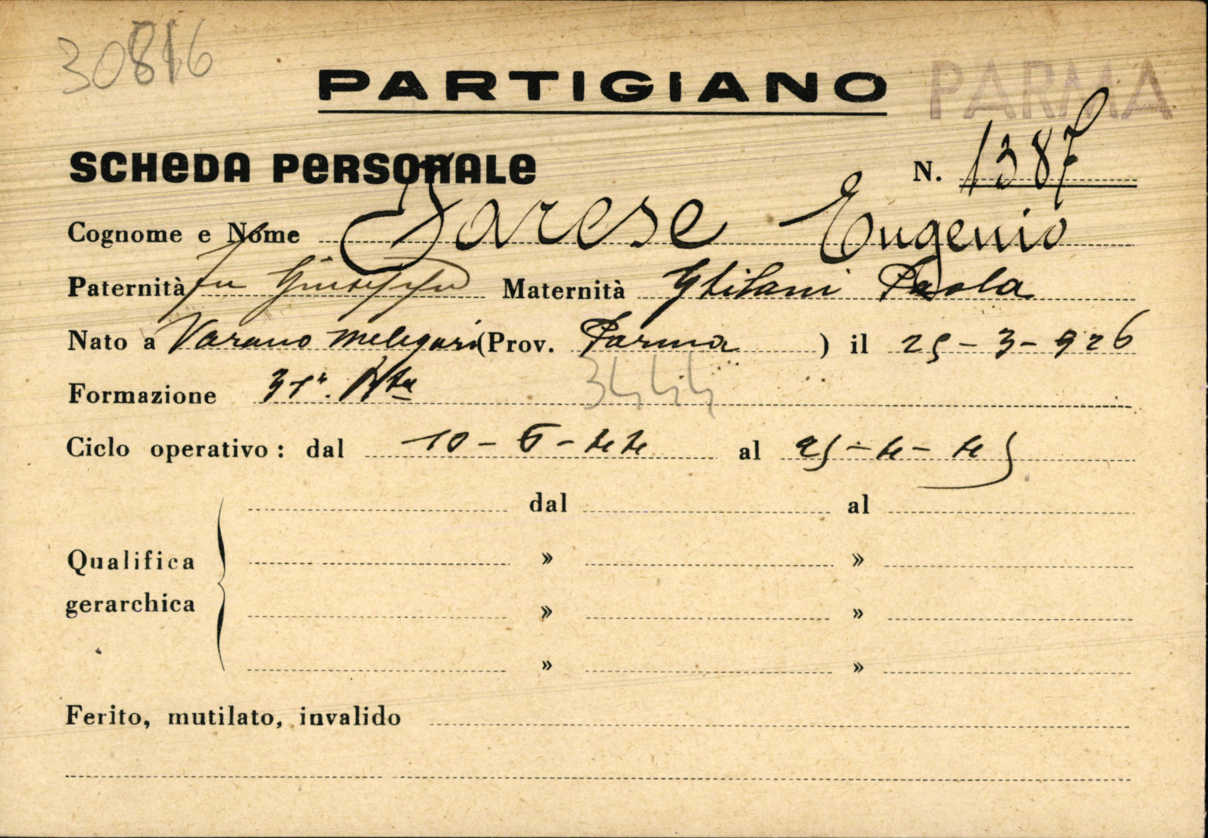 30816
PARTIGIANO PARMA
SCHEDA PERSONALE N. 1387
Cognome e Nome Varese Eugenio
Paternità fu Giuseppe Maternità Ghilani Paola
Nato a Varano Melegari (Prov. Parma ) il 25-3-926
Formazione 31ª. Bta 3444
Ciclo operativo : dal 10-6-44 al 25-4-45
dal al
Qualifica » »
gerarchica » »
» »
Ferito, mutilato, invalido